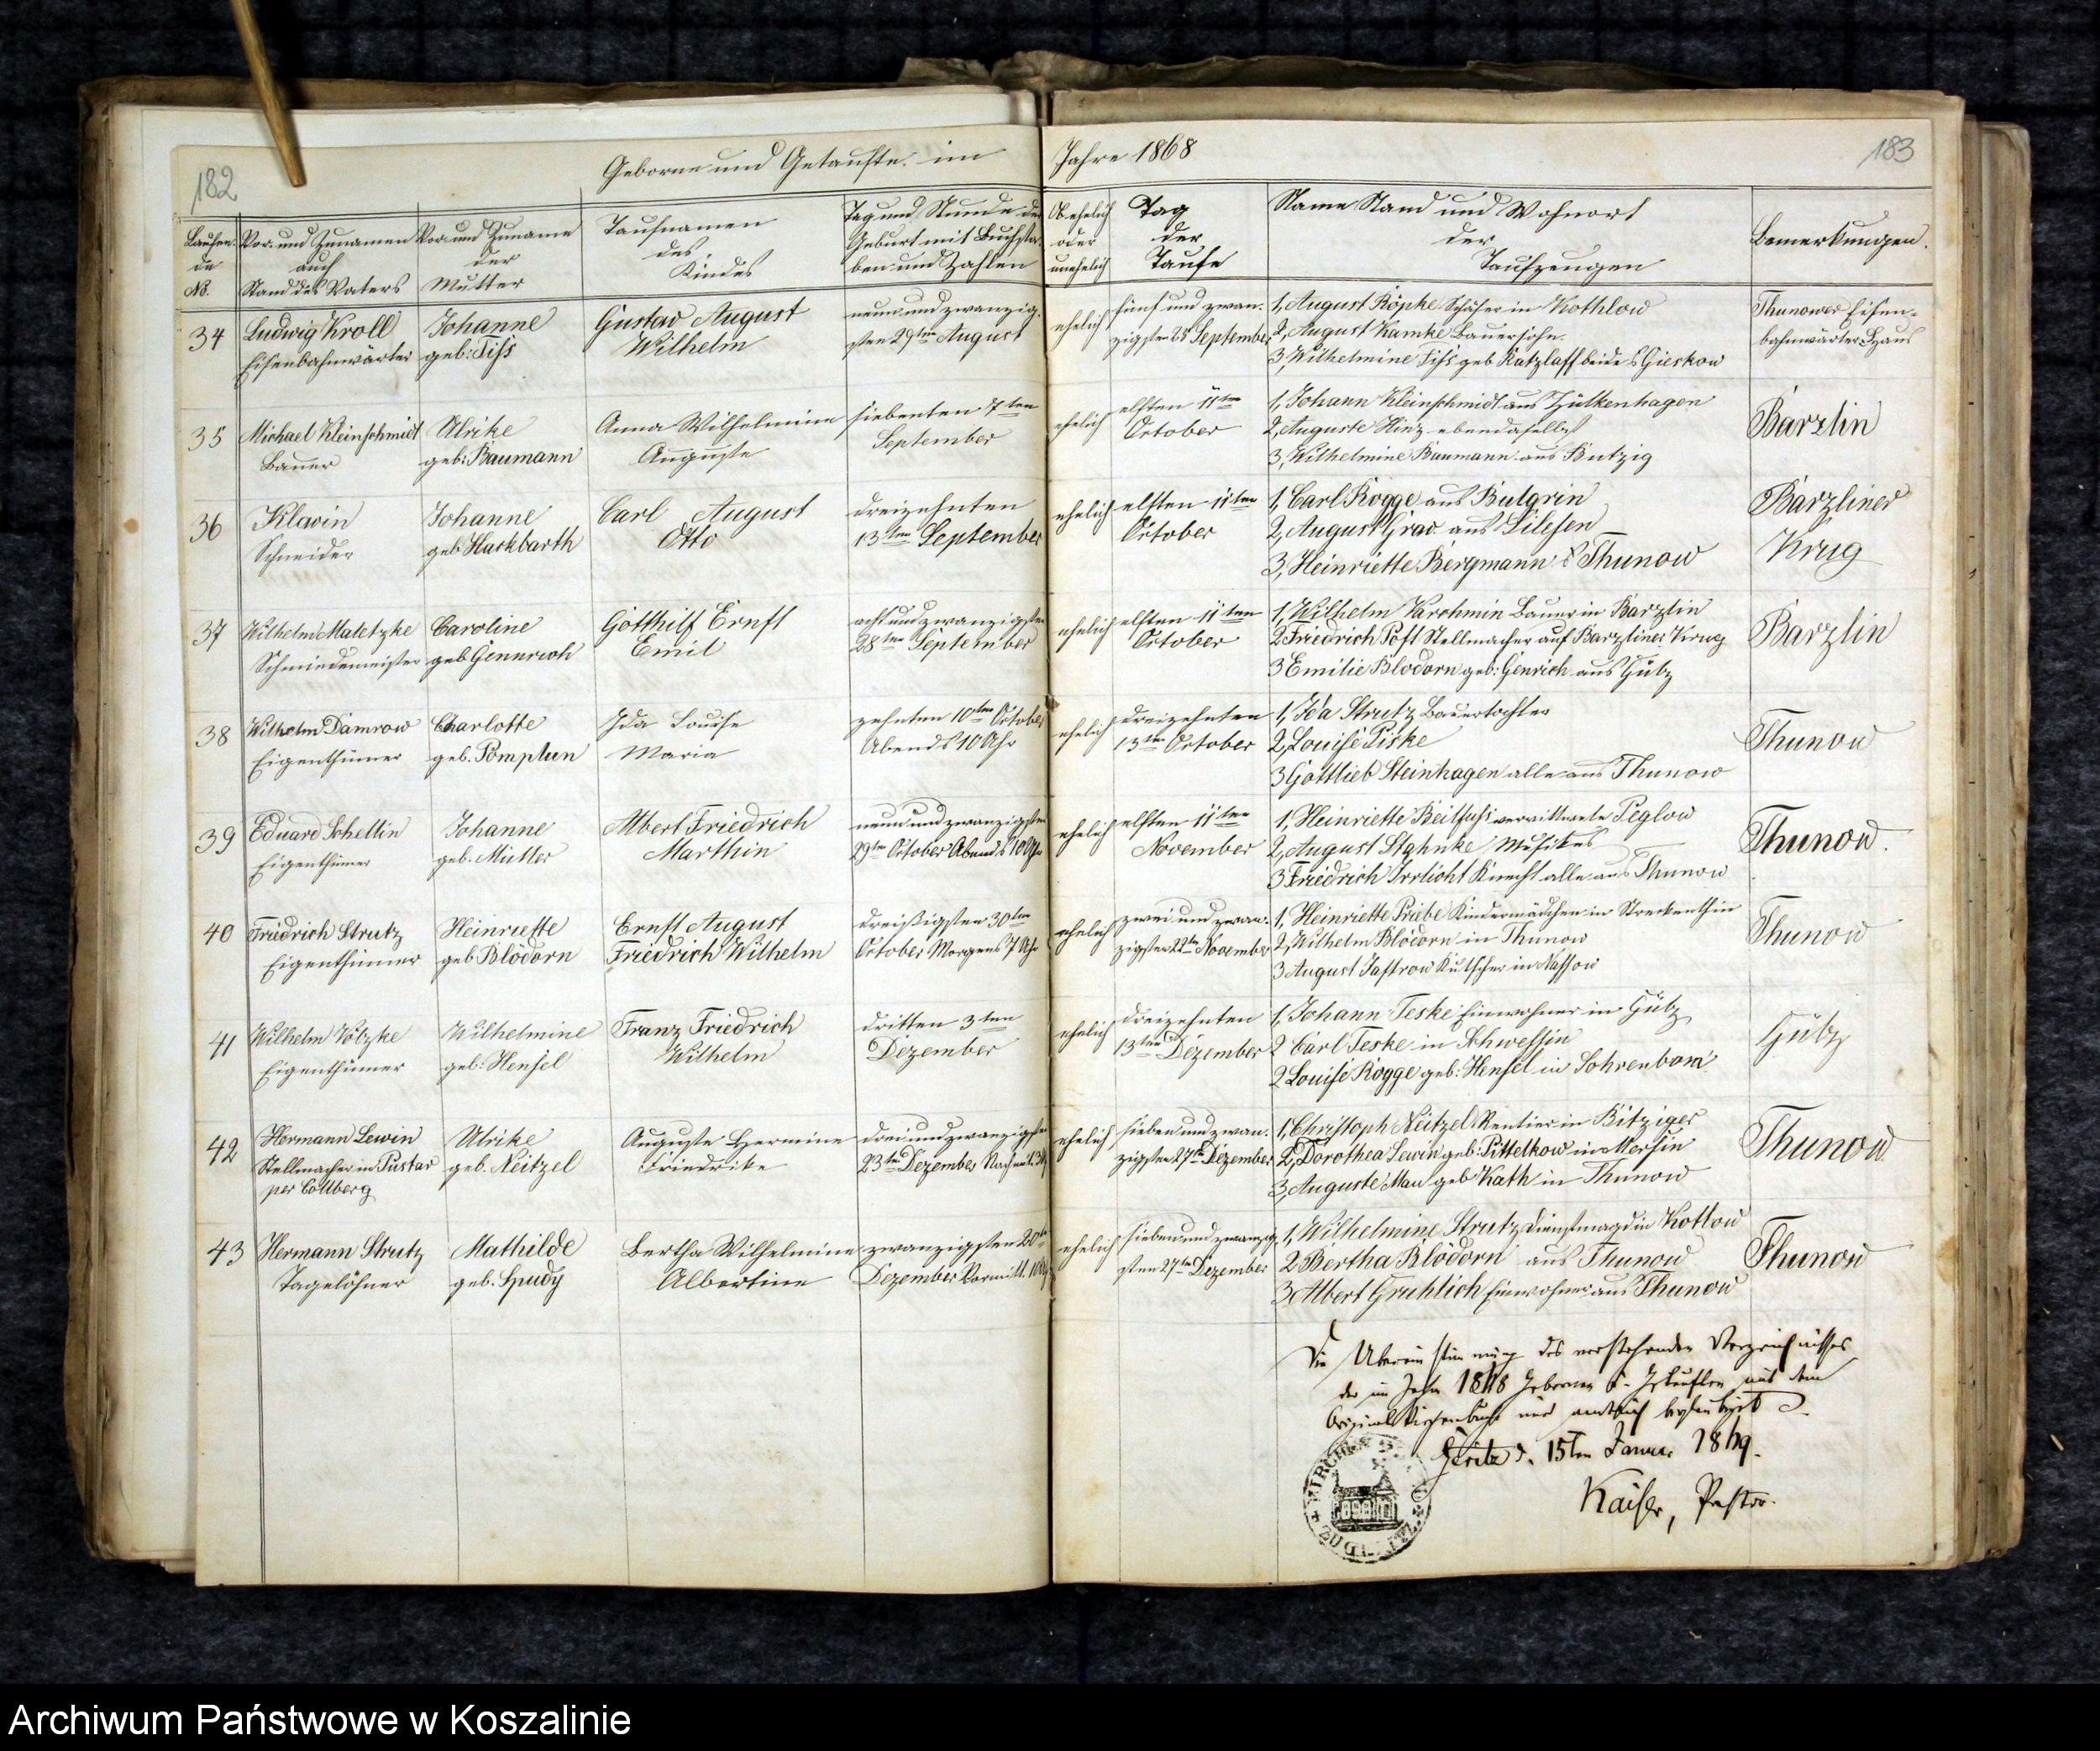 182
Geborne und Getaufte im
Jahre 1868
183
Laufen-
de
No.
Vor- und Zunamen
auch
Stand des Vaters
Vor- und Zuname
der
Mutter
Taufnamen
des
Kindes
Tag und Stunde der
Geburt mit Buchsta-
ben und Zahlen
Ob ehelich
oder
unehelich
Tag
der
Taufe
Name Stand und Wohnort
der
Taufzeugen
Bemerkungen.
34
Ludwig Kroll
Eisenbahnwärter
Johanne
geb: Fiss
Gustav August
Wilhelm
neunundzwanzig-
sten 29ten August
ehelich
fünf und zwan-
zigsten 25 September
1, August Röpke Schäfer in Kothlow
2, August Ramke Bauersohn
3, Wilhelmine Fiss geb Ratzlaff beide s Gieskow
Thunower Eisen-
bahnwärter-Haus
35
Michael Kleinschmidt
Bauer
Ulrike
geb: Baumann
Anna Wilhelmine
Auguste
siebenten 7ten
September
ehelich
elften 11ten
October
1, Johann Kleinschmidt aus Hülkenhagen
2, Auguste Hinz ebendaselbst
3, Wilhelmine Baumann aus Butzig
Barzlin
36
Klavin
Schneider
Johanne
geb Hackbarth
Carl August
Otto
dreizehnten
13ten September
ehelich
elften 11ten
October
1, Carl Rogge aus Bulgrin
2, August Grav aus Silesen
3, Heinriette Bergmann s Thunow
Barzliner
Krug
37
Wilhelm Maletzke
Schmiedemeister
Caroline
geb Gennrich
Gotthilf Ernst
Emil
achtundzwanzigsten
28ten September
ehelich
elften 11ten
October
1, Wilhelm Varchmin Bauer in Barzlin
2 Friedrich Post Stellmacher auf Barzliner Krug
3 Emilie Blodorn geb: Genrich aus Gübz
Barzlin
38
Wilhelm Damrow
Eigenthümer
Charlotte
geb. Pomplun
Ida Louise
Maria
zehnten 10ten October
Abends 10 Uhr
ehelich
dreizehnten
13ten October
1, Ida Strutz Bauertochter
2, Louise Piske
3 Gottlieb Steinhagen alle aus Thunow
Thunow
39
Eduard Schellin
Eigenthümer
Johanne
geb. Müller
Albert Friedrich
Marthin
neunundzwanzigsten
29ten October Abends 10 Uhr
ehelich
elften 11ten
November
1, Heinriette Beilfuss verwittwete Peglow
2, August Stahnke Musikus
3 Friedrich Irrlicht Knecht alle aus Thunow
Thunow.
40
Friedrich Strutz
Eigenthümer
Heinriette
geb Blödorn
Ernst August
Friedrich Wilhelm
dreißigsten 30ten
October Morgens 7 Uhr
ehelich
zwei und zwan-
zigsten 22ten November
1, Heinriette Priebe Kindermädchen in Streckenthin
2, Wilhelm Blödorn in Thunow
3 August Jastrow Kutscher in Nassow
Thunow
41
Wilhelm Volzke
Eigenthümer
Wilhelmine
geb: Hensel
Franz Friedrich
Wilhelm
dritten 3ten
Dezember
ehelich
dreizehnten
13ten Dezember
1, Johann Teske Einwohner in Gübz
2 Carl Teske in Schwessin
2 Louise Rogge geb: Hensel in Sohrenbom
Gübz
42
Hermann Lewin
Stellmacher in Pustar
per Collberg
Ulrike
geb. Neitzel
Auguste Hermine
Friedrike
dreiundzwanzigsten
23ten Dezember Nachmitt.
ehelich
sieben und zwan-
zigsten 27ten Dezember
1, Christoph Neitzel Rentier in Bitziger
2, Dorothea Lewin geb: Pittelkow in Mersin
3, Auguste Mau geb Kath in Thunow
Thunow
43
Hermann Strutz
Tagelöhner
Mathilde
geb. Spudy
Bertha Wilhelmine
Albertine
zwanzigsten 20ten
Dezember Vormitt. 10 Uhr
ehelich
siebenundzwanzig-
sten 27ten Dezember
1, Wilhelmine Strutz Dienstmagd in Kotlow
2 Bertha Blödorn aus Thunow
3 Albert Gruhlich Einwohner aus Thunow
Thunow
Die Übereinstimmung des vorstehenden Verzeichnisses
der im Jahr 1868 Geborenen u. Getauften mit dem
Original Kirchenbuche wird amtlich bescheinigt
Geritz d. 15ten Januar 1869.
Kaiser, Pastor.
KIRCHEN
ZU G
Archiwum Państwowe w Koszalinie